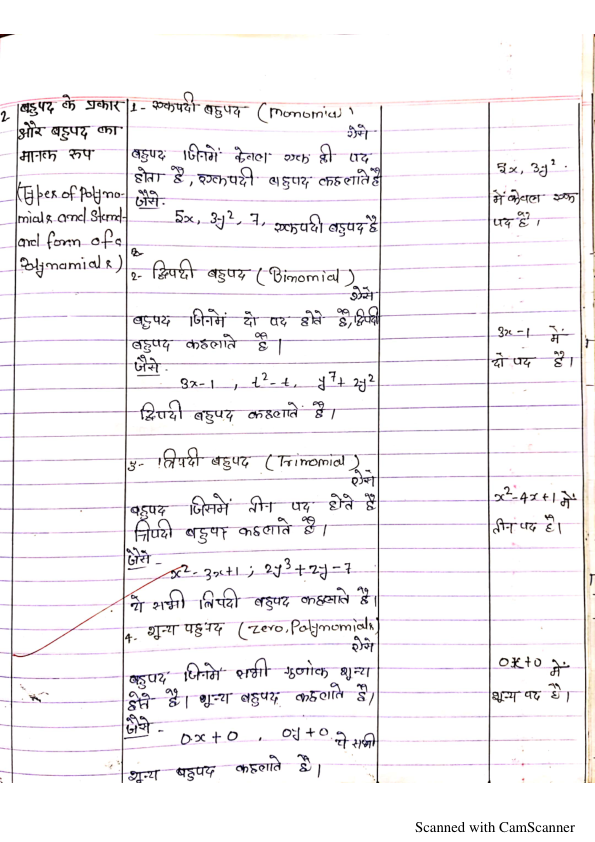 2
बहुपद के प्रकार
और बहुपद का
मानक रूप
(Types of Polyno-
mials and Stand-
and form of a
Polynamials)
1- एकपदी बहुपद (monomial)
ऐसे
बहुपद जिनमें केवल एक ही पद
होता है, एकपदी बहुपद कहलाते है
जैसे-
5x, 3y², 7, एकपदी बहुपद है
2- द्विपदी बहुपद (Binomial)
ऐसे
बहुपद जिनमें दो पद होते है, द्विपदी
बहुपद कहलाते है।
जैसे-
3x-1 , t²-t, y⁷+2y²
द्विपदी बहुपद कहलाते है।
3- त्रिपदी बहुपद (Trinomial)
ऐसे
बहुपद जिसमें तीन पद होते है
त्रिपदी बहुपद कहलाते है।
जैसे-
x²-3x+1 ; 2y³+2y-7
ये सभी त्रिपदी बहुपद कहलाते है।
4. शून्य बहुपद (Zero, Polynomials)
ऐसे
बहुपद जिनमें सभी गुणांक शून्य
होते है। शून्य बहुपद कहलाते है,
जैसे-
0x+0 , 0y+0 ये सभी
शून्य बहुपद कहलाते है।
5x, 3y²
में केवल एक
पद है।
3x-1 में
दो पद है।
x²-4x+1 में
तीन पद है।
0x+0 में
शून्य पद है।
Scanned with CamScanner